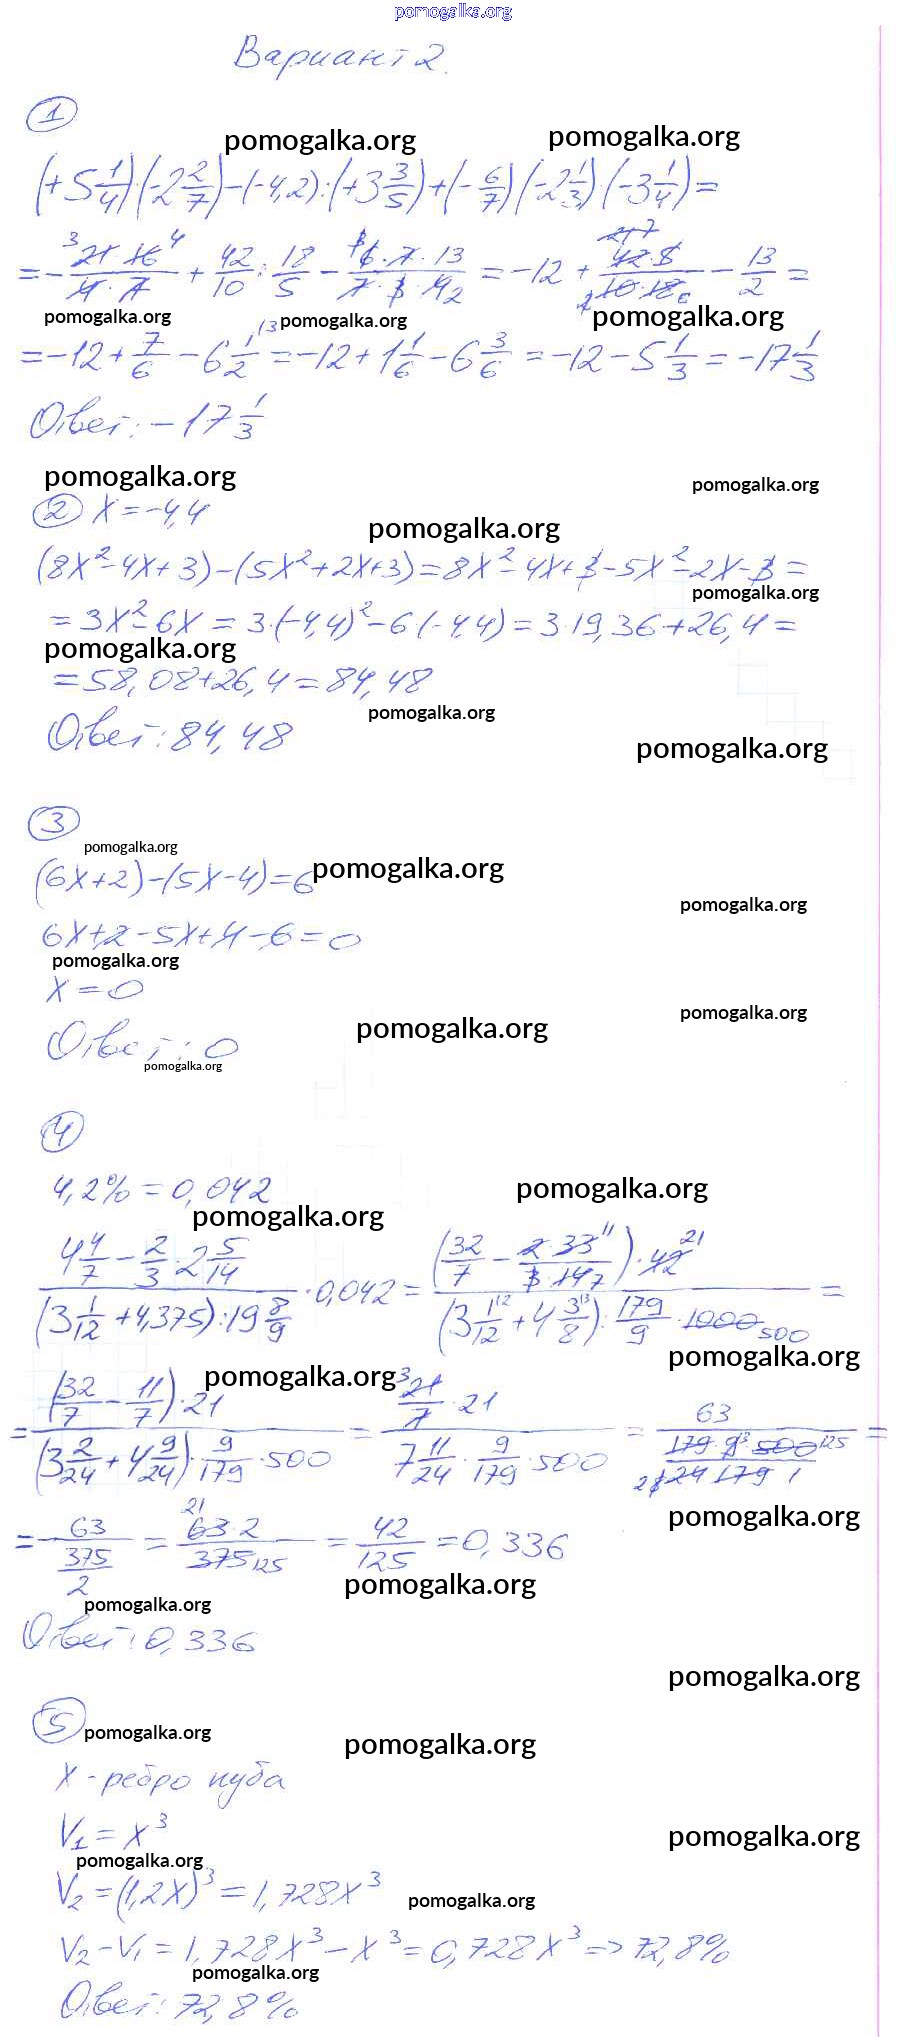 pomogalka.org
Вариант 2.
1
pomogalka.org pomogalka.org
(+5 1/4)·(-2 2/7)-(-4,2):(+3 3/5)+(-6/7)(-2 1/3)·(-3 1/4)=
=-(21·16)/(4·7) 3 4 + 42/10 : 18/5 - (6·7·13)/(7·3·4) 2 = -12 + (42·5)/(10·18) 21 7 2 6 - 13/2 =
pomogalka.org pomogalka.org pomogalka.org
=-12+7/6-6 1/2 (3 =-12+1 1/6-6 3/6=-12-5 1/3=-17 1/3
Ответ: -17 1/3
pomogalka.org pomogalka.org
2 x=-4,4
pomogalka.org
(8x²-4x+3)-(5x²+2x+3)=8x²-4x+3-5x²-2x-3=
pomogalka.org
=3x²-6x=3·(-4,4)²-6(-4,4)=3·19,36+26,4=
pomogalka.org
=58,08+26,4=84,48
pomogalka.org
Ответ: 84,48
pomogalka.org
3
pomogalka.org
(6x+2)-(5x-4)=6 pomogalka.org
pomogalka.org
6x+2-5x+4-6=0
pomogalka.org
x=0
pomogalka.org
Ответ: 0 pomogalka.org
pomogalka.org
4
4,2%=0,042 pomogalka.org
pomogalka.org
(4 4/7 - 2/3·2 5/14)/((3 1/12+4,375):19 8/9)·0,042=((32/7 - (2·33)/(3·14) 11 7)·42 21)/((3 1/12 (2 +4 3/8 (3):179/9·1000 500)=
pomogalka.org
pomogalka.org
=((32/7-11/7)·21)/((3 2/24+4 9/24)·9/179·500)=(21/7 3·21)/(7 11/24·9/179·500)=63/((179·9·500)/(24·179·1) 3 125 2 8)=
pomogalka.org
=63/(375/2)=(63·2)/375 21 125=42/125=0,336
pomogalka.org
pomogalka.org
Ответ: 0,336
pomogalka.org
5 pomogalka.org
pomogalka.org
x - ребро куба
V₁=x³
pomogalka.org
pomogalka.org
V₂=(1,2x)³=1,728x³
pomogalka.org
V₂-V₁=1,728x³-x³=0,728x³=>72,8%
pomogalka.org
Ответ: 72,8%